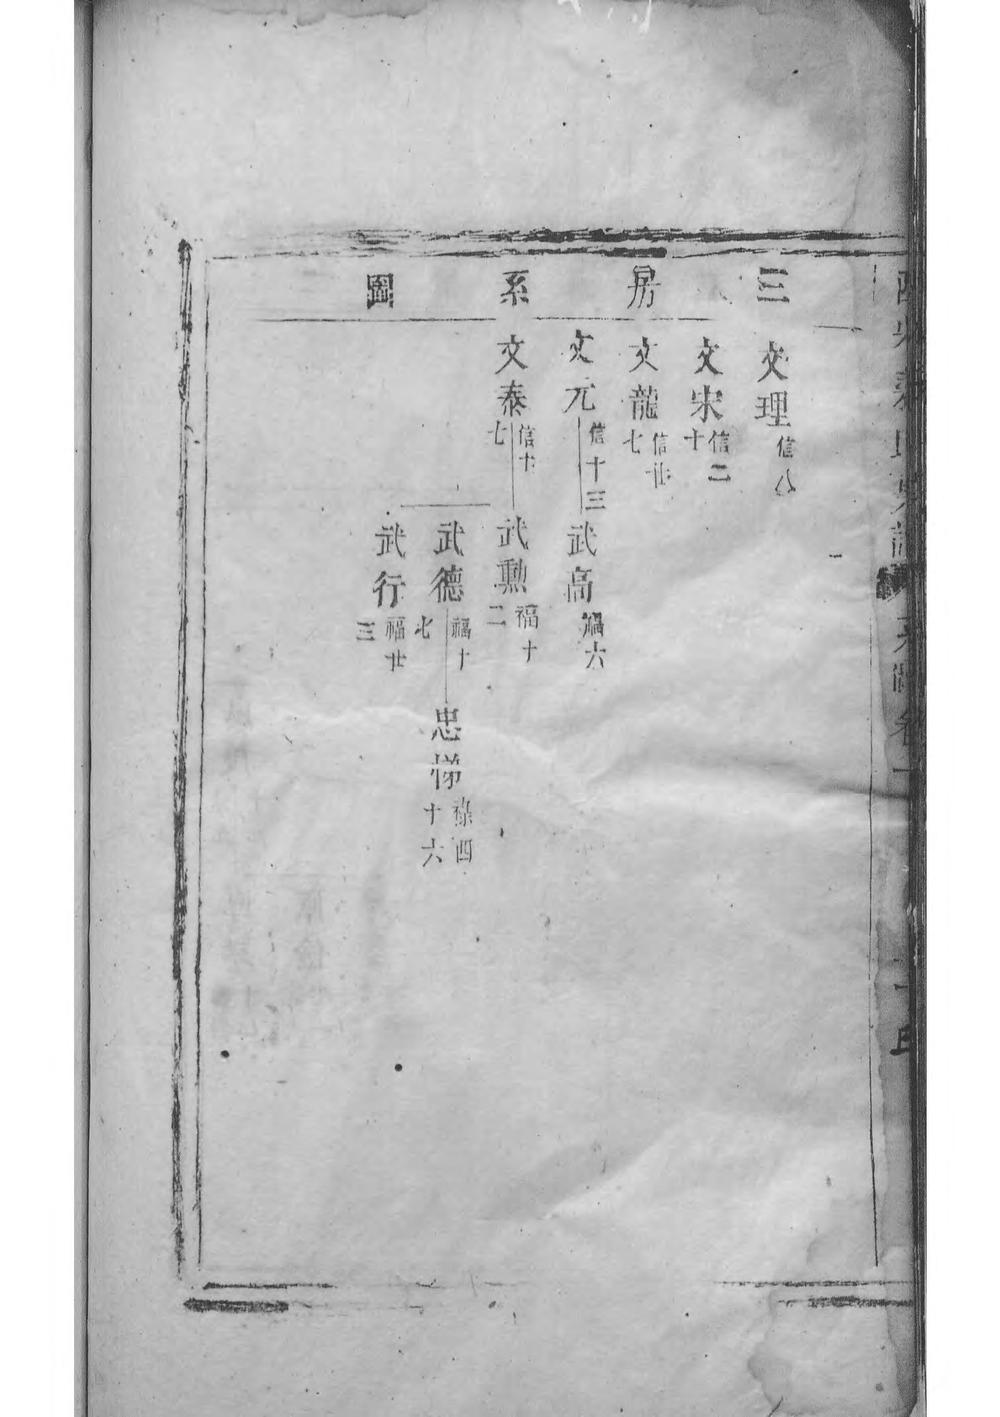 三房系圖
文理 信八
文宋 信二十
文龍 信廿七
文元 信十三
文泰 信十七
武高 福六
武勲 福十二
武德 福十七
武行 福廿三
忠悌 祿四十六